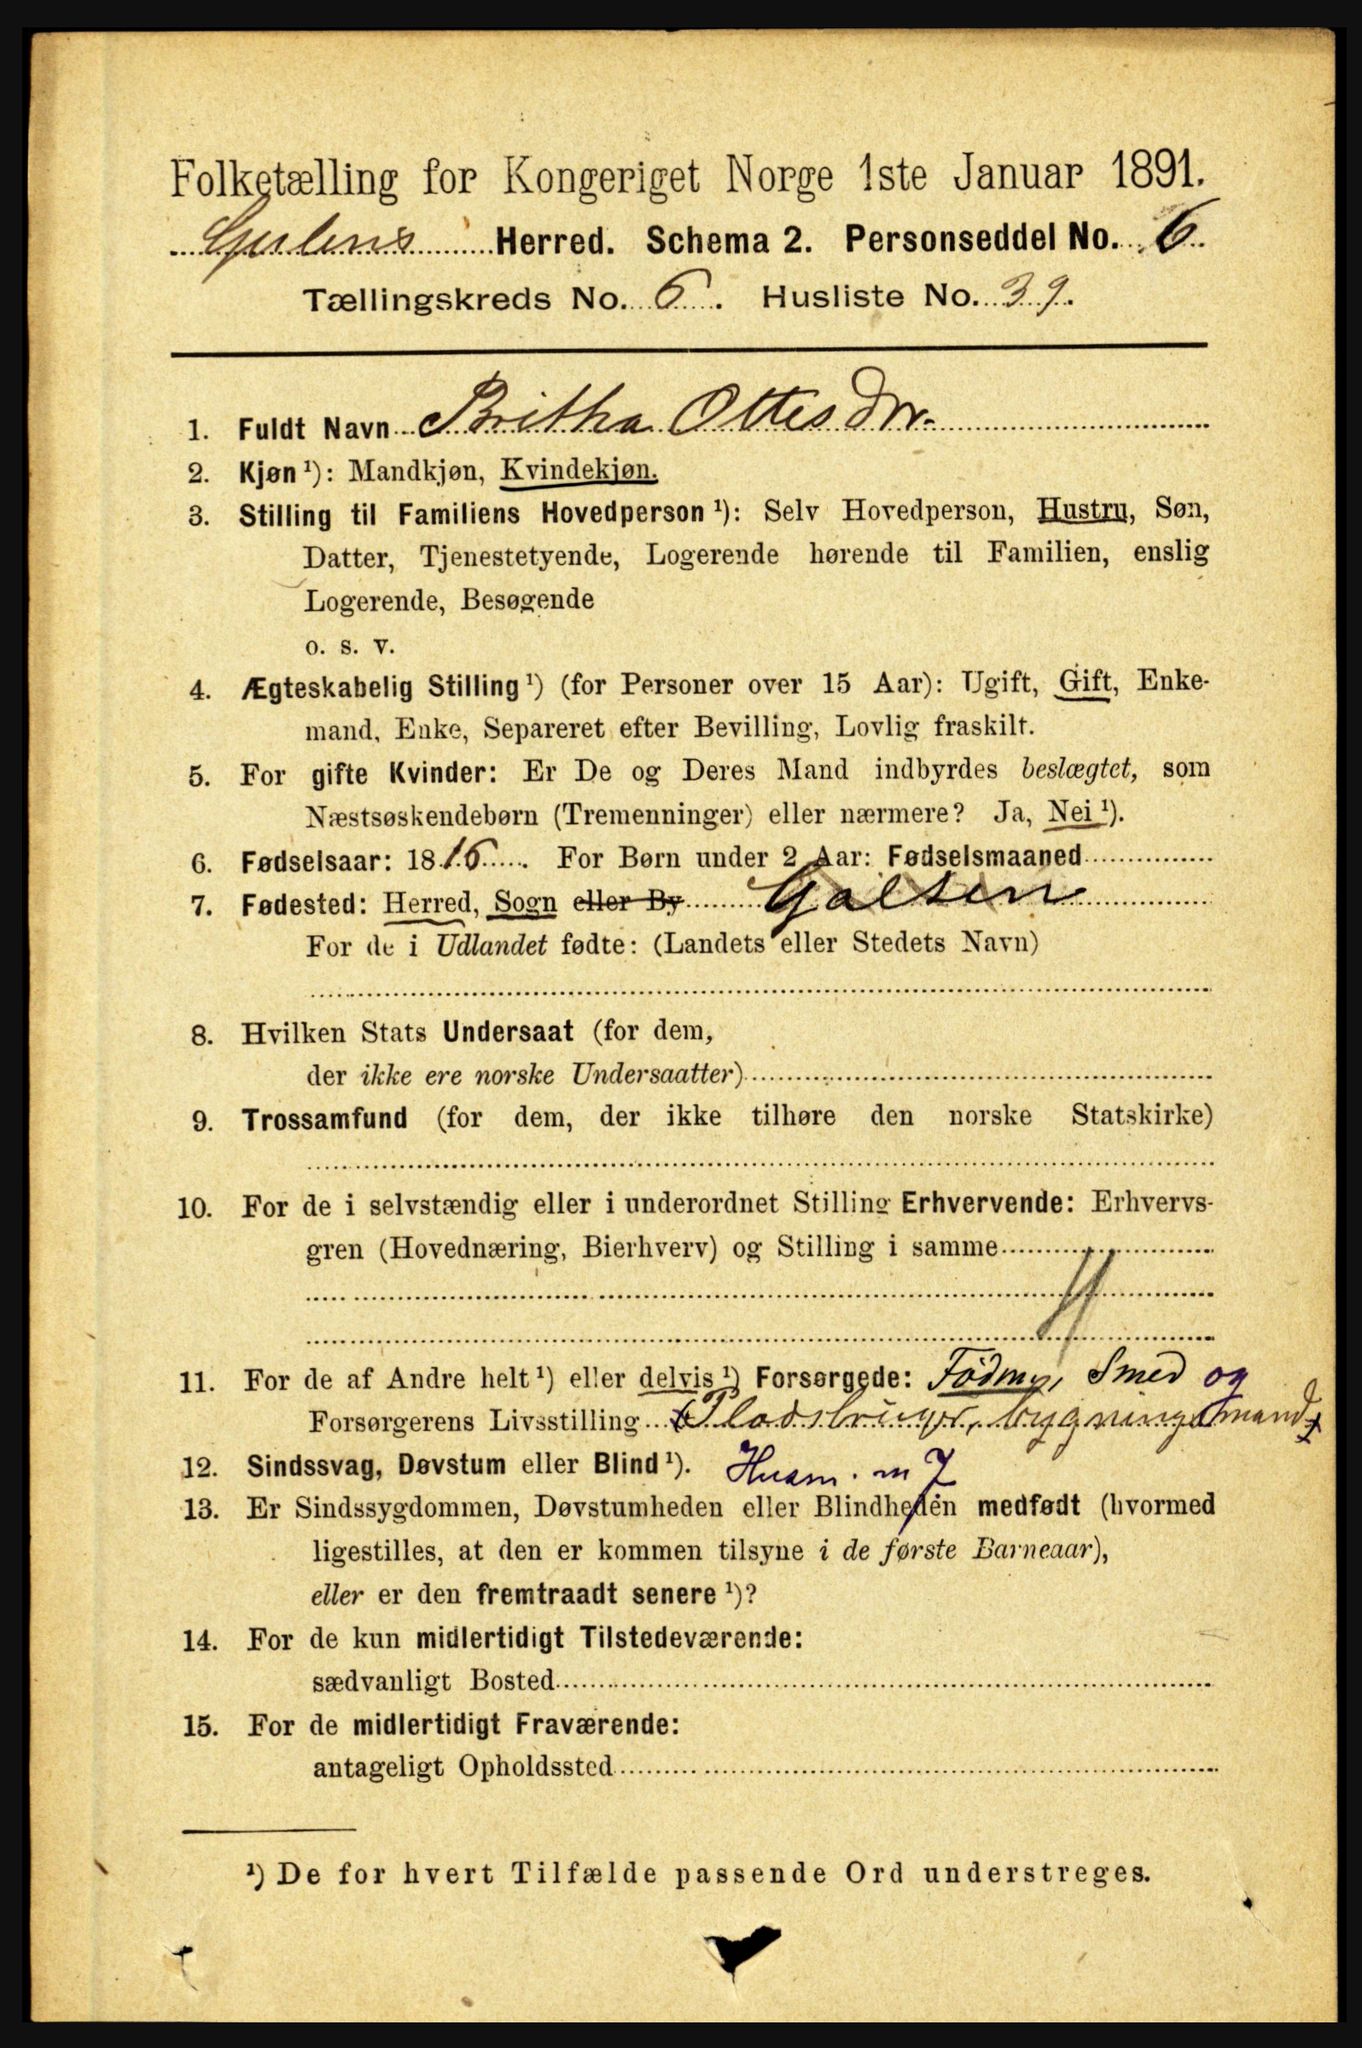 Folketælling for Kongeriget Norge 1ste Januar 1891.
Gulens Herred. Schema 2. Personseddel No. 6.
Tællingskreds No. 6. Husliste No. 39.
1. Fuldt Navn Britha Ottesdtr.
2. Kjøn ¹): Mandkjøn, Kvindekjøn.
3. Stilling til Familiens Hovedperson ¹): Selv Hovedperson, Hustru, Søn,
Datter, Tjenestetyende, Logerende hørende til Familien, enslig
Logerende, Besøgende
o. s. v.
4. Ægteskabelig Stilling ¹) (for Personer over 15 Aar): Ugift, Gift, Enke-
mand, Enke, Separeret efter Bevilling, Lovlig fraskilt.
5. For gifte Kvinder: Er De og Deres Mand indbyrdes beslægtet, som
Næstsøskendebørn (Tremenninger) eller nærmere? Ja, Nei ¹).
6. Fødselsaar: 1816. For Børn under 2 Aar: Fødselsmaaned
7. Fødested: Herred, Sogn eller By
For de i Udlandet fødte: (Landets eller Stedets Navn)
8. Hvilken Stats Undersaat (for dem,
der ikke ere norske Undersaatter)
9. Trossamfund (for dem, der ikke tilhøre den norske Statskirke)
10. For de i selvstændig eller i underordnet Stilling Erhvervende: Erhvervs-
gren (Hovednæring, Bierhverv) og Stilling i samme
11. For de af Andre helt ¹) eller delvis ¹) Forsørgede: Smed og
Forsørgerens Livsstilling Pladsbruger, bygningsmand
12. Sindssvag, Døvstum eller Blind ¹). Husm. m J
13. Er Sindssygdommen, Døvstumheden eller Blindheden medfødt (hvormed
ligestilles, at den er kommen tilsyne i de første Barneaar),
eller er den fremtraadt senere ¹)?
14. For de kun midlertidigt Tilstedeværende:
sædvanligt Bosted
15. For de midlertidigt Fraværende:
antageligt Opholdssted
¹) De for hvert Tilfælde passende Ord understreges.